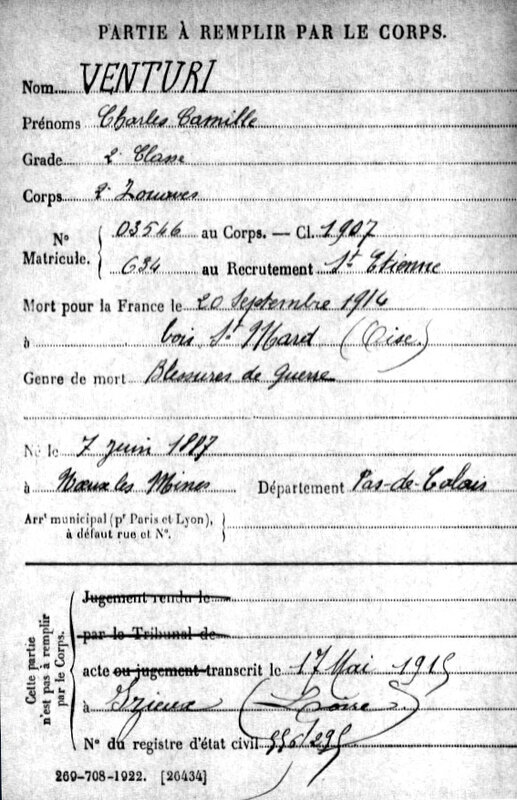 PARTIE À REMPLIR PAR LE CORPS.
Nom VENTURI
Prénoms Charles Camille
Grade 2e Classe
Corps 2e Zouaves
N° Matricule. 03546 au Corps. — Cl. 1907
634 au Recrutement St Etienne
Mort pour la France le 20 Septembre 1914
à bois St Mard (Oise)
Genre de mort Blessures de guerre
Né le 7 juin 1887
à Nœux les Mines Département Pas-de-Calais
Arrt municipal (pr Paris et Lyon),
à défaut rue et N°.
Cette partie n'est pas à remplir par le Corps.
Jugement rendu le
par le Tribunal de
acte ou jugement transcrit le 17 Mai 1915
à Izieux (Loire)
N° du registre d'état civil 556/295
269-708-1922. [26434]